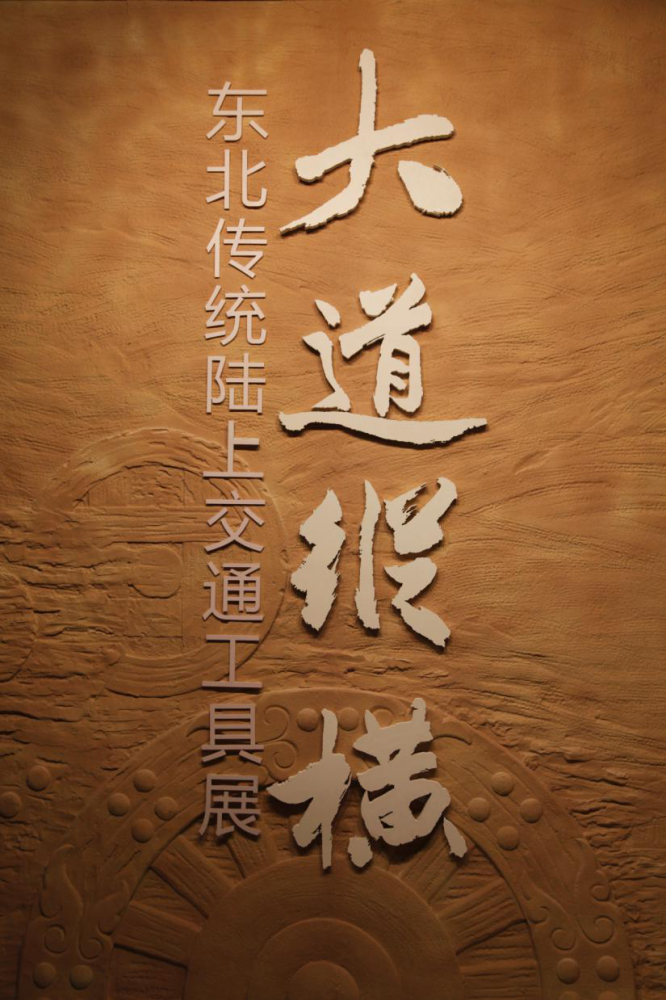 大道纵横
东北传统陆上交通工具展